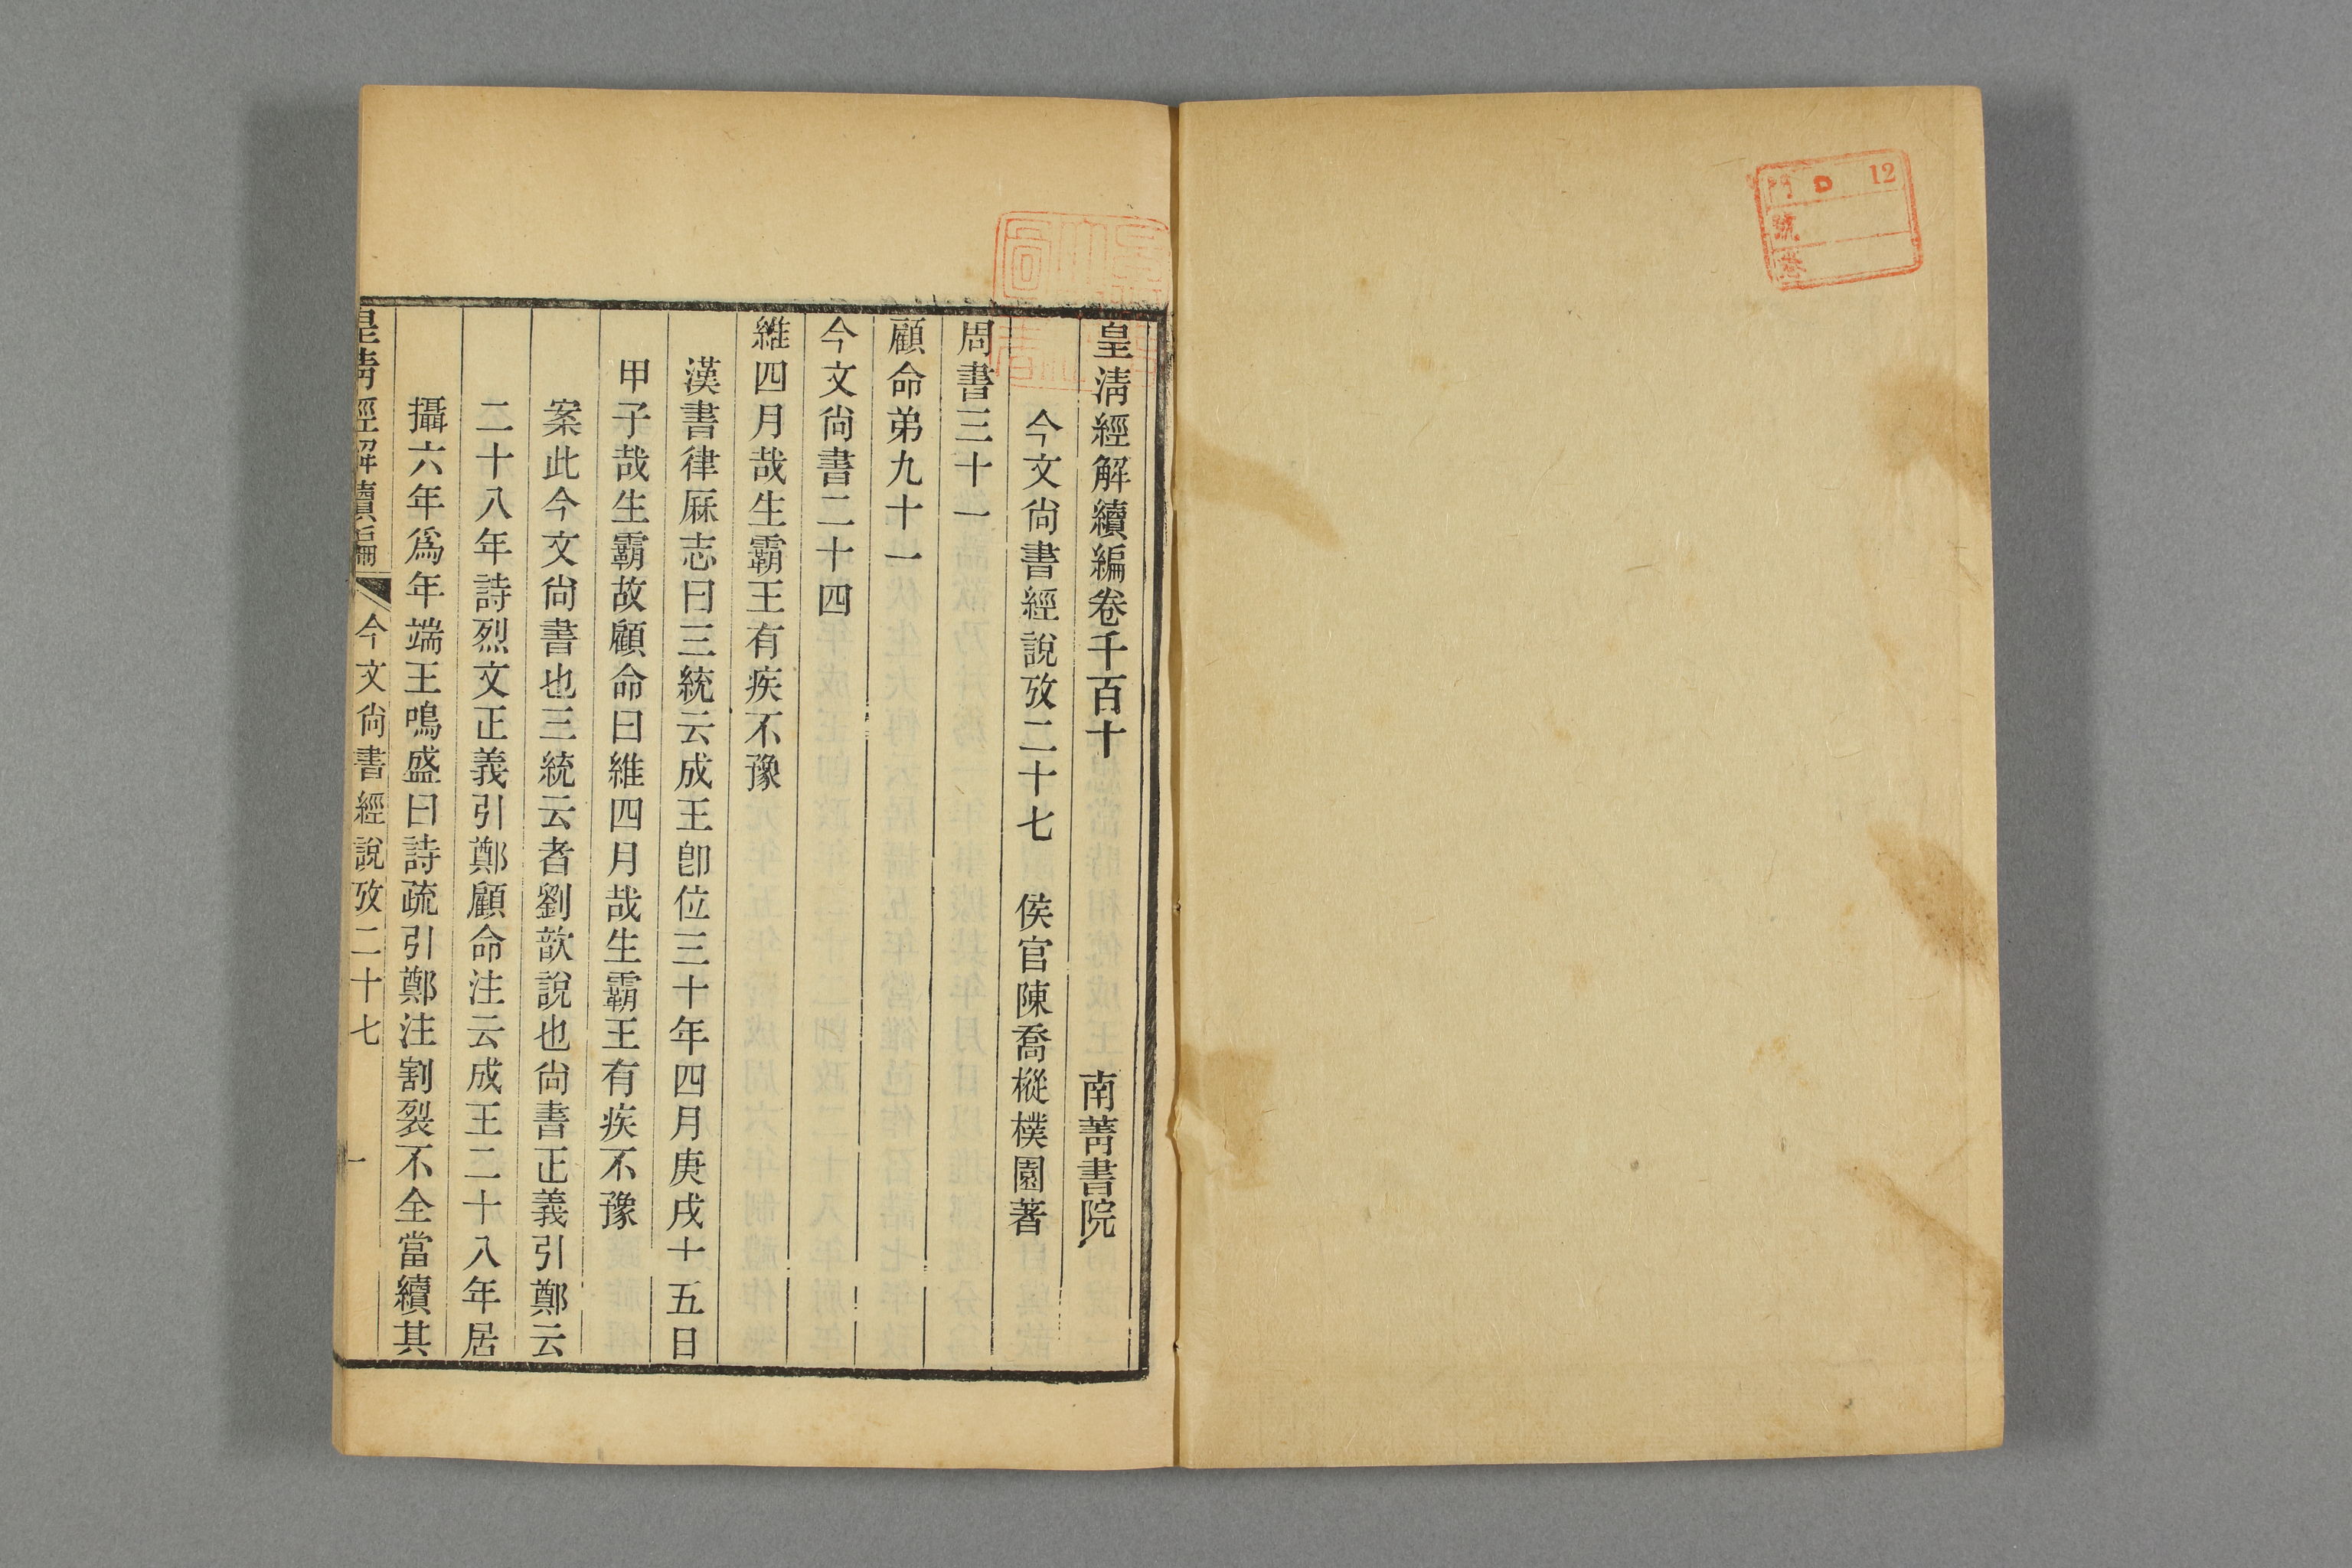 12
門 D
號
皇淸經解續編卷千百十 南菁書院
今文尙書經說攷二十七 侯官陳喬樅樸園著
周書三十一
顧命弟九十一
今文尙書二十四
維四月哉生霸王有疾不豫
漢書律厤志曰三統云成王卽位三十年四月庚戌十五日
甲子哉生霸故顧命曰維四月哉生霸王有疾不豫
案此今文尙書也三統云者劉歆說也尙書正義引鄭云
二十八年詩烈文正義引鄭顧命注云成王二十八年居
攝六年爲年端王鳴盛曰詩疏引鄭注割裂不全當續其
皇淸經解續編 今文尙書經說攷二十七 一